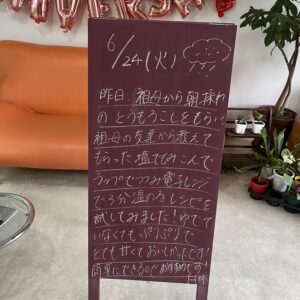 6/24(火)
昨日 祖母から朝採れ
のとうもろこしをもらい
祖母の友達から教えて
もらった塩でもみこんで
ラップでつつみ電子レンジ
で5分温めるレシピを
試してみました！ゆでて
いなくてもぷりぷりで
とても甘くておいしかったです！
簡単にできるのでお勧めです！